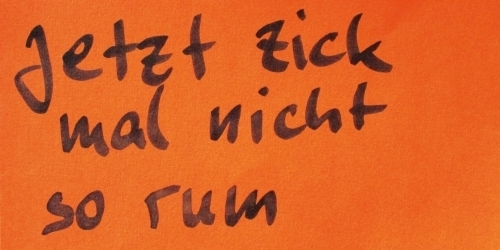 Jetzt zick
mal nicht
so rum